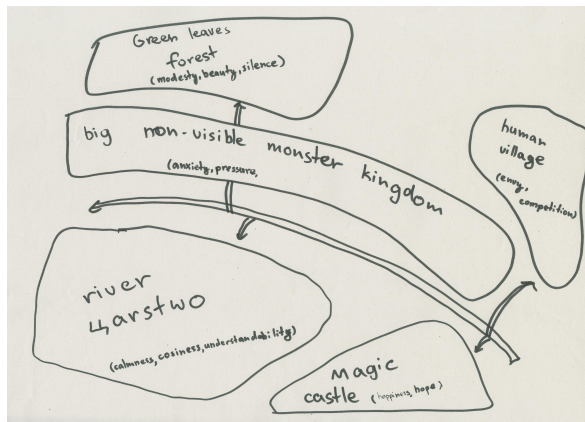 Green leaves
forest
(modesty, beauty, silence)
big non-visible monster kingdom
(anxiety, pressure,
human
village
(envy,
competition)
river
(calmness, cosiness, understandability)
magic
castle (happiness, hope)